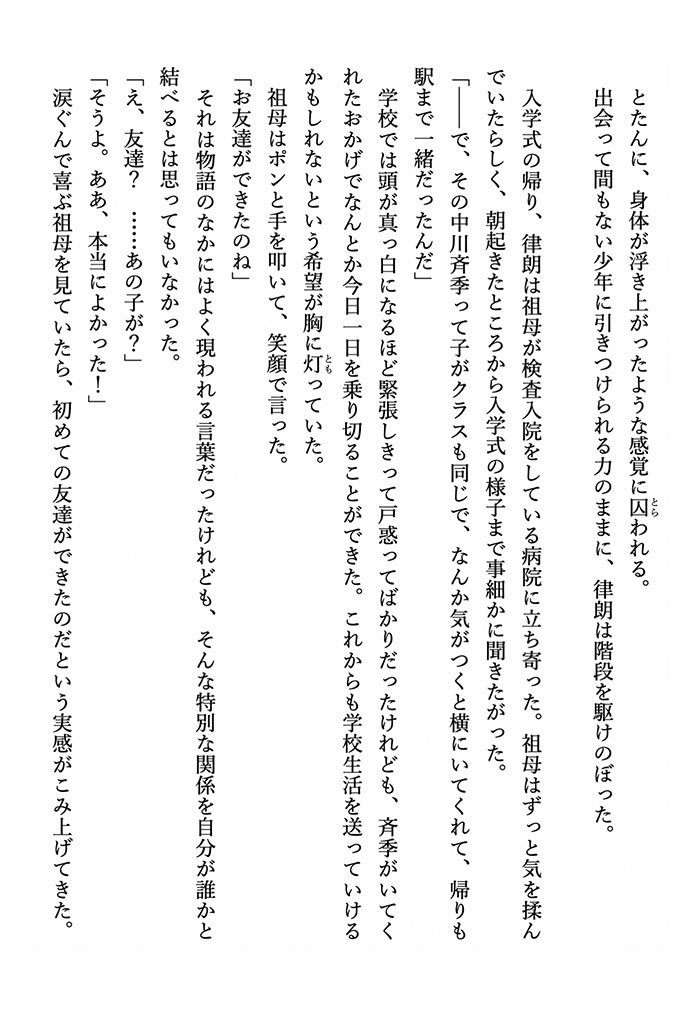 とたんに、身体が浮き上がったような感覚に囚われる。
とら
出会って間もない少年に引きつけられる力のままに、律朗は階段を駆けのぼった。
入学式の帰り、律朗は祖母が検査入院をしている病院に立ち寄った。祖母はずっと気を揉ん
でいたらしく、朝起きたところから入学式の様子まで事細かに聞きたがった。
「――で、その中川斉季って子がクラスも同じで、なんか気がつくと横にいてくれて、帰りも
駅まで一緒だったんだ」
学校では頭が真っ白になるほど緊張しきって戸惑ってばかりだったけれども、斉季がいてく
れたおかげでなんとか今日一日を乗り切ることができた。これからも学校生活を送っていける
かもしれないという希望が胸に灯っていた。
とも
祖母はポンと手を叩いて、笑顔で言った。
「お友達ができたのね」
それは物語のなかにはよく現われる言葉だったけれども、そんな特別な関係を自分が誰かと
結べるとは思ってもいなかった。
「え、友達？　……あの子が？」
「そうよ。ああ、本当によかった！」
涙ぐんで喜ぶ祖母を見ていたら、初めての友達ができたのだという実感がこみ上げてきた。